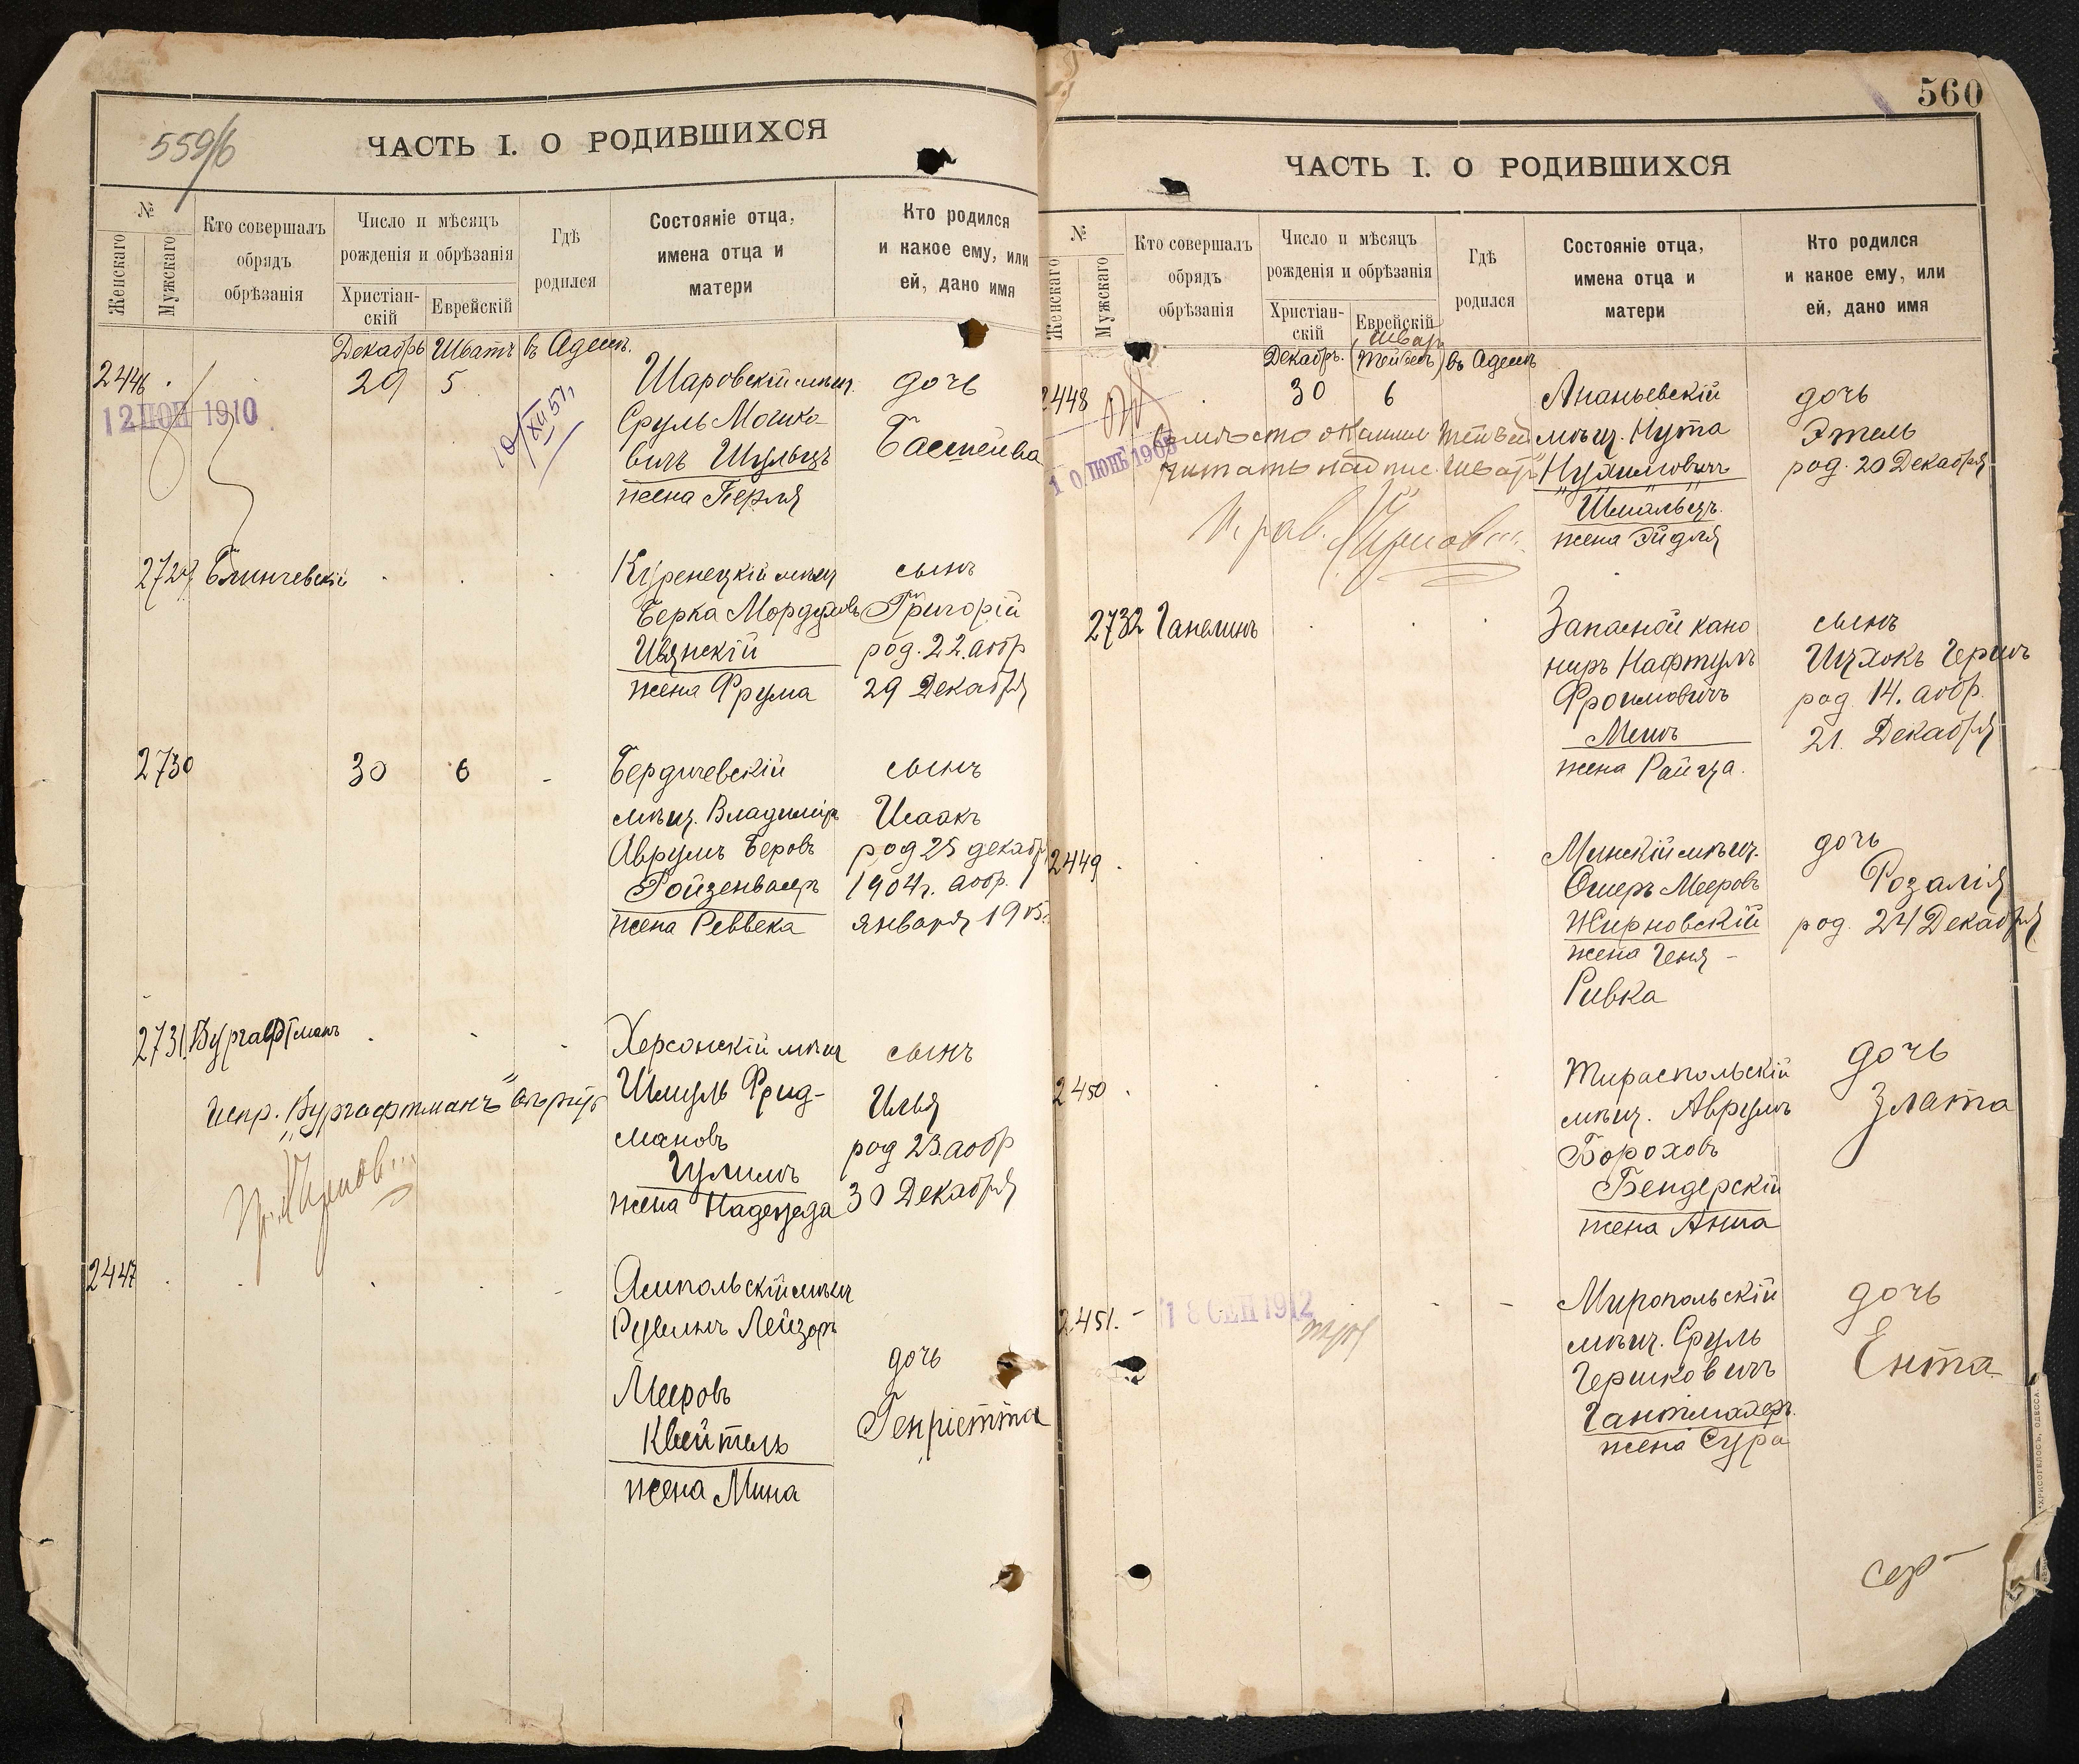 559/б
ЧАСТЬ I. О РОДИВШИХСЯ
№
Женскаго
Мужскаго
Кто совершалъ
обрядъ
обрѣзанія
Число и мѣсяцъ
рожденія и обрѣзанія
Христіан-
скій
Еврейскій
Гдѣ
родился
Состояніе отца,
имена отца и
матери
Кто родился
и какое ему, или
ей, дано имя
Декабрь Шватъ въ Одессѣ.
2446 29 5
12 ІЮН 1910
Шаровскій мѣщ.
Сруль Мошко-
вичъ Шульцъ
жена Перля
дочь
Басшейва
Блинчевскій
Куренецкій мѣщ
Берка Мордуховъ
Ивянскій
жена Фрума
сынъ
Григорій
род. 22. аобр
29 Декабря
2730 30 6 -
Бердичевскій
мѣщ. Владиміръ
Аврумъ Беровъ
Ройзенваеръ
жена Реввека
сынъ
Исаакъ
род 25 декабр
1904г. аобр. 1
января 1905.
2731
Херсонскій мѣщ
Шмуль Фрид-
мановъ
Цулимъ
жена Надежда
Испр. "Бургафтманъ"
сынъ
Илья
род 23. аобр
30 Декабря
2447
Ямпольскій мѣщ
Рувинъ Лейзоръ
Мееровъ
Квейтель
жена Мина
дочь
Генріетта
560
ЧАСТЬ I. О РОДИВШИХСЯ
№
Женскаго
Мужскаго
Кто совершалъ
обрядъ
обрѣзанія
Число и мѣсяцъ
рожденія и обрѣзанія
Христіан-
скій
Еврейскій
Гдѣ
родился
Состояніе отца,
имена отца и
матери
Кто родился
и какое ему, или
ей, дано имя
Декабрь. въ Одессѣ
2448 30 6
10 ІЮНЬ 1905
Ананьевскій
мѣщ. Нута
Нухимовичъ
Шмальцъ.
жена Эйдля
дочь
Этель
род. 20 Декабря
2732 Ганелинъ
Запасной кано
ниръ Нафтулъ
Фроимовичъ
Мешъ
жена Райца.
сынъ
Ицхокъ Гершъ
род. 14. аобр.
21. Декабря
2449
Минскій мѣщ.
Ошеръ Мееровъ
Жирновскій
жена Геня -
Ривка
дочь
Розалія
род. 24 Декабря
2450
Тираспольскій
мѣщ. Аврумъ
Бороховъ
Бендерскій
жена Анна
дочь
Злата
2451. -
18 СЕН 1912
Миропольскій
мѣщ. Сруль
Гершковичъ
Гантмахеръ.
жена Сура
дочь
Ента